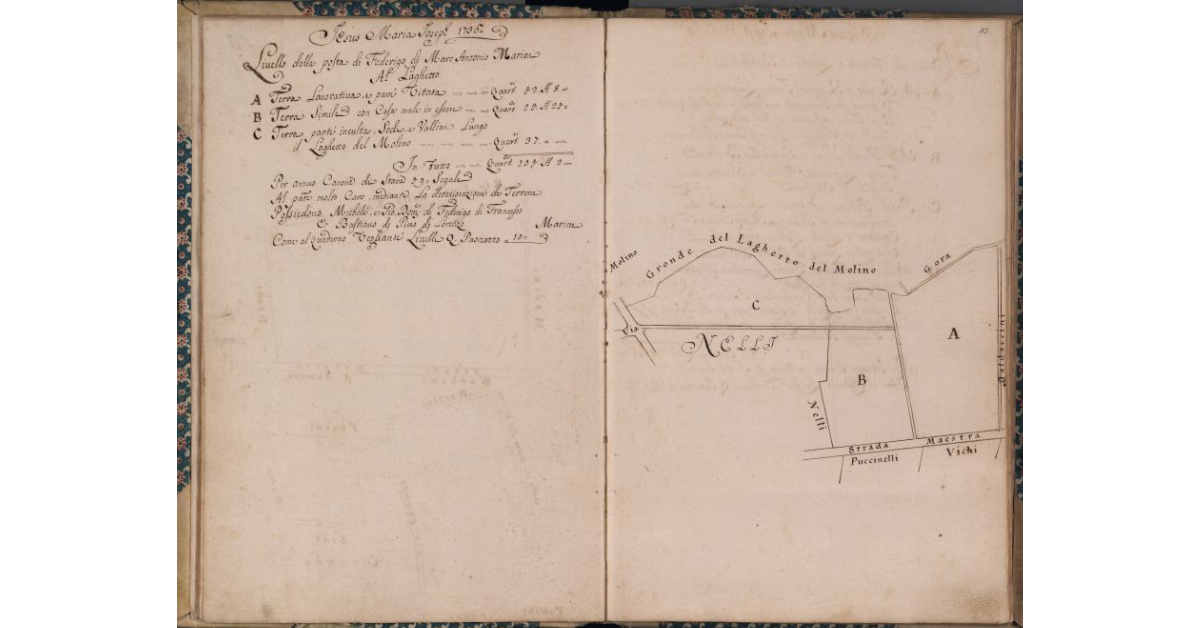 Jesus Maria Joseph 1736
Livello della posta di Federigo di Marc Antonio Marini
Al Laghetto
A Terra Lavorativa, e parte Vitata Quart. 42. A 8.
B Terra Simile con Casa male in essere Quart.
C Terra parte inculta, Sode, e Valloni Lungo
il Laghetto del Molino Quart. 37.
In Tutto Quart.
Per annuo Canone di Stara 49 Segale
Al pnte. molto Caro, mediante La deteriorazione di Terreni
Possiedono Michele, e Pio. Dom. di Federigo di Francesco
E Bastiano di Piero di Lorenzo Marini
Come al Quaderno Vegliante Livelli Q. Paonazzo a 10
Molino
Gronde del Laghetto del Molino
Gora
C
Via
NELLI
A
Balduccini
B
Nelli
Strada Maestra
Puccinelli
Vichi